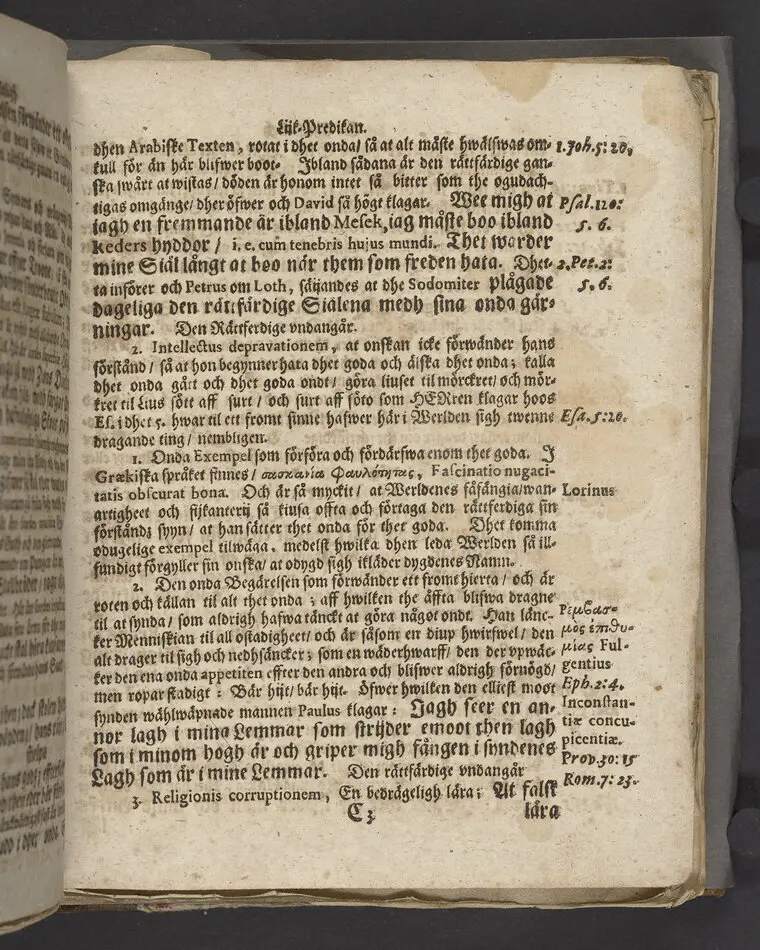 Lijk-Predikan.
dhen Arabiske Texten, rotat i dhet onda/ så at alt måste hwälfwas om- 1. Joh. 5: 20.
kull för än här blifwer boot. Ibland sådana är den rättfärdige gan-
ska swårt at wistas/ döden är honom intet så bitter som the ogudach-
tigas omgänge/ dher öfwer och David så högt klagar. Wee migh at Psal. 120:
jagh en fremmande är ibland Mesek, iag måste boo ibland 5. 6.
Keders hyddor/ i. e. cum tenebris hujus mundi. Thet warder
mine Siäl långt at boo när them som freden hata. Dhet- 2. Pet. 2:
ta införer och Petrus om Loth, säijandes at dhe Sodomiter plågade 5. 6.
dageliga den rättfärdige Siälena medh sina onda gär-
ningar. Den Rättferdige undangår.
2. Intellectus depravationem, at onskan icke förwänder hans
förstånd/ så at hon begynner hata dhet goda och älska dhet onda; kalla
dhet onda gått och dhet goda ondt/ göra liuset til mörckret/ och mör-
kret til Lius sött aff surt/ och surt aff söto som HERren klagar hoos
Es. i dhet 5. hwar til ett fromt sinne hafwer här i Werlden sigh twenne Esa. 5: 20.
dragande ting/ nembligen.
1. Onda Exempel som förföra och fördärfwa enom thet goda. I
Grækiska språket finnes/ σασκανία φαυλότητας, Fascinatio nugaci-
tatis obscurat bona. Och är så myckit/ at Werldenes fåfängia/ wan- Lorinus
artigheet och fijkanterij så kiusa offta och förtaga den rättferdiga sin
förstånds syyn/ at han sätter thet onda för ther goda. Dhet komma
odugelige exempel tilwäga, medelst hwilka dhen leda Werlden så ill-
fundigt förgyller sin onska/ at odygd sigh ikläder dygdenes Namn.
2. Den onda Begärelsen som förwänder ett fromt hierta/ och är
roten och källan til alt thet onda; aff hwilken the äffta blifwa dragne
til at synda/ som aldrigh hafwa tänckt at göra något ondt. Han länc- Ρεμβασ-
ker Menniskian til all ostadigheet/ och är såsom en diup hwirfwel/ den μὸς ἐπιθυ-
alt drager til sigh och nedhsäncker; som en wäderhwarff/ den der upwäc- μίας Ful-
ker den ena onda appetiten effter den andra och blifwer aldrigh förnögd/ gentius
men ropar stadigt: Bär hijt/ bär hijt. Öfwer hwilken den elliest moot Eph. 2: 4.
synden wählwäpnade mannen Paulus klagar: Jagh seer en an- Inconstan-
nor lagh i mina Lemmar som strijder emoot then lagh tiæ concu-
som i minom hogh är och griper migh fången i syndenes picentiæ.
Lagh som är i mine Lemmar. Den rättfärdige undangår Prov. 30: 15
3. Religionis corruptionem, En bedrägeligh lära; At falsk Rom. 7: 23.
C 3 lära